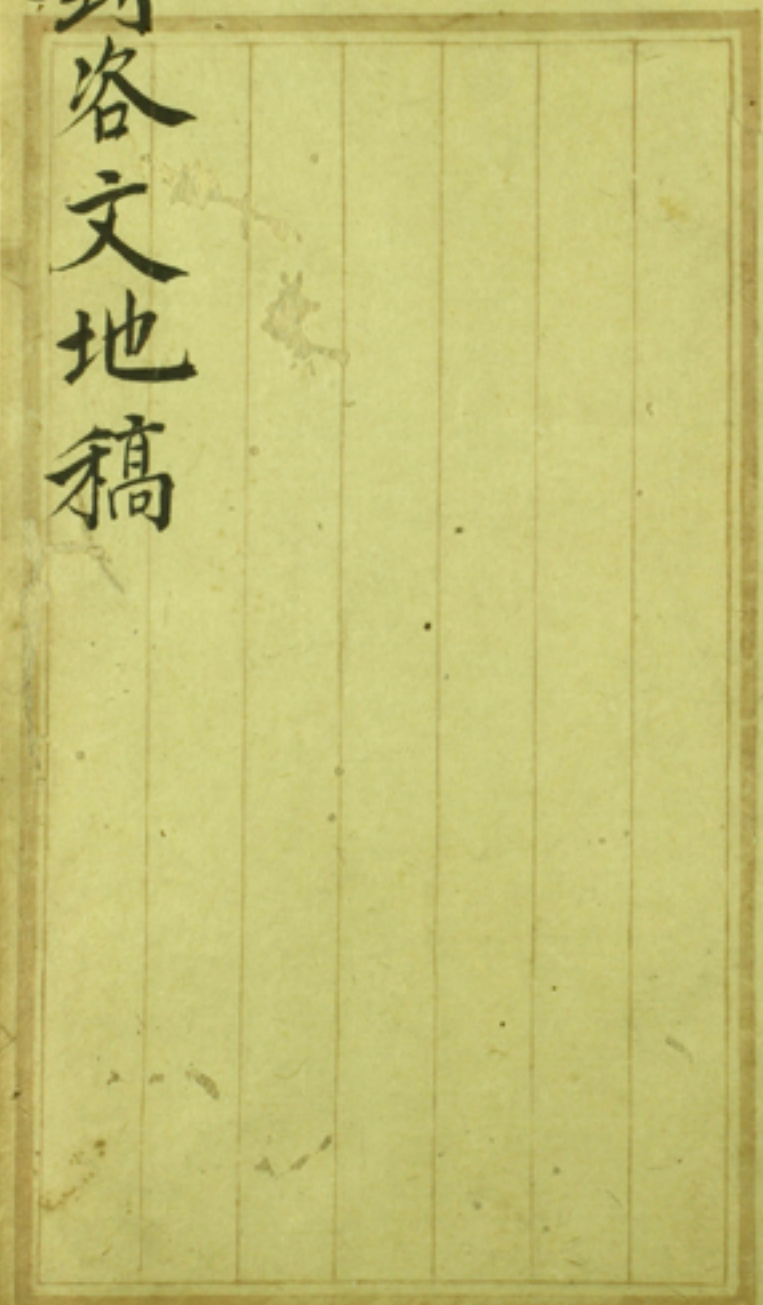 咨文地稿